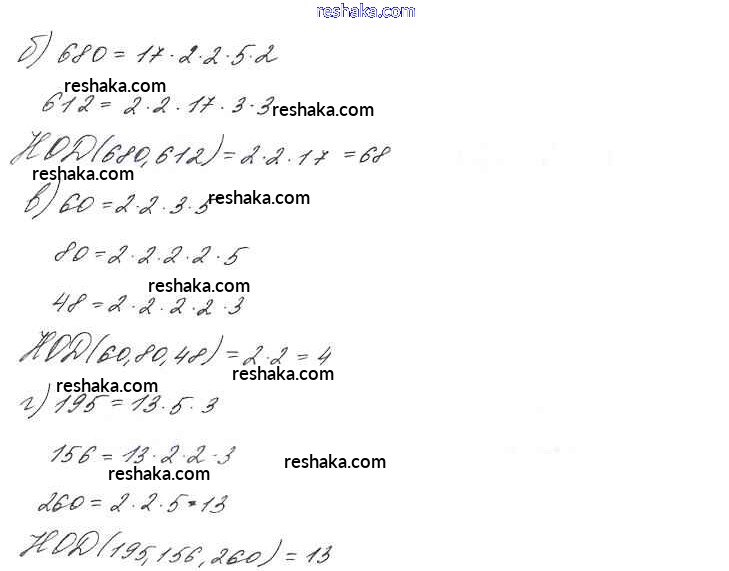 reshaka.com
б) 680 = 17 · 2 · 2 · 5 · 2
reshaka.com
612 = 2 · 2 · 17 · 3 · 3
reshaka.com
НОД(680,612) = 2 · 2 · 17 = 68
reshaka.com
в) 60 = 2 · 2 · 3 · 5
reshaka.com
80 = 2 · 2 · 2 · 2 · 5
reshaka.com
48 = 2 · 2 · 2 · 2 · 3
НОД(60,80,48) = 2 · 2 = 4
reshaka.com
reshaka.com
г) 195 = 13 · 5 · 3
156 = 13 · 2 · 2 · 3
reshaka.com
reshaka.com
260 = 2 · 2 · 5 · 13
НОД(195,156,260) = 13